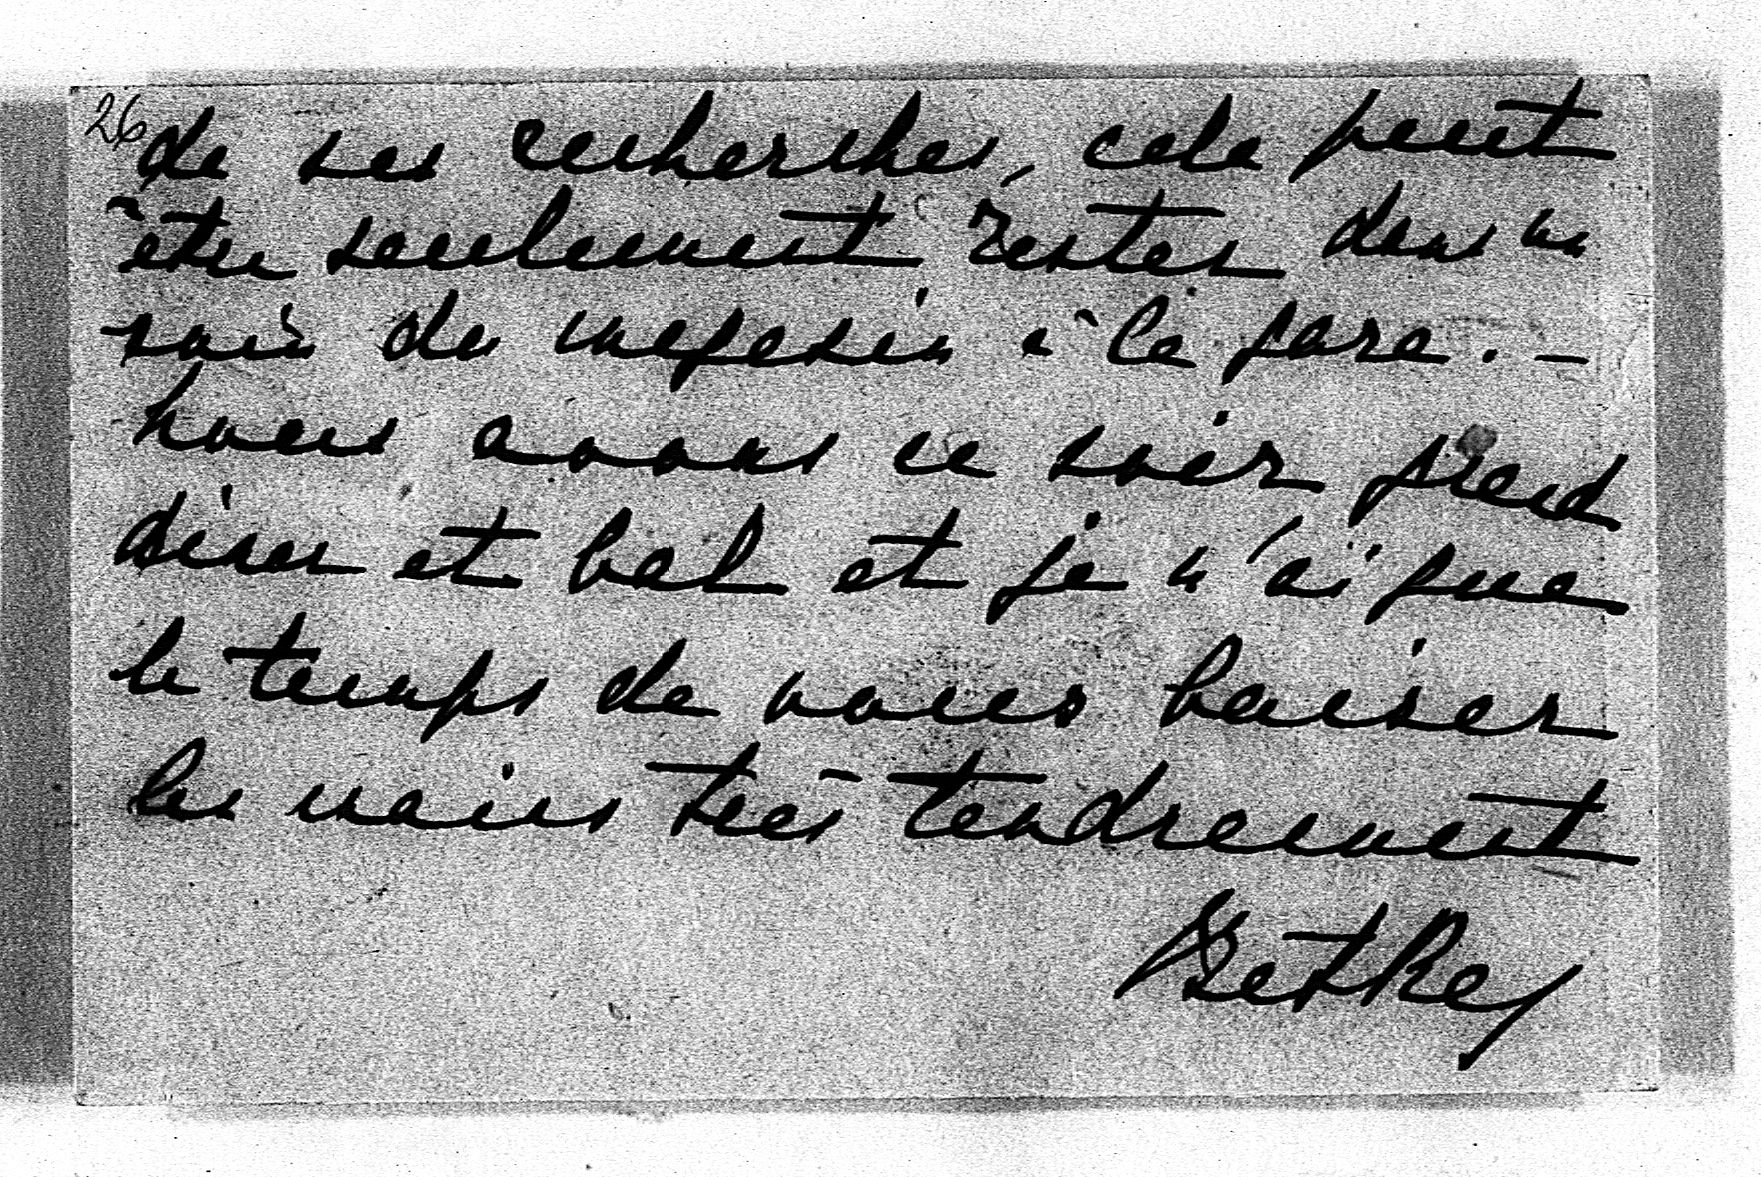 26
de ses recherches, cela peut
être seulement rester dans un
coin de magasin à la gare. -
nous avons ce soir grand
diner et bal et je n'ai que
le temps de vous baiser
les mains très tendrement